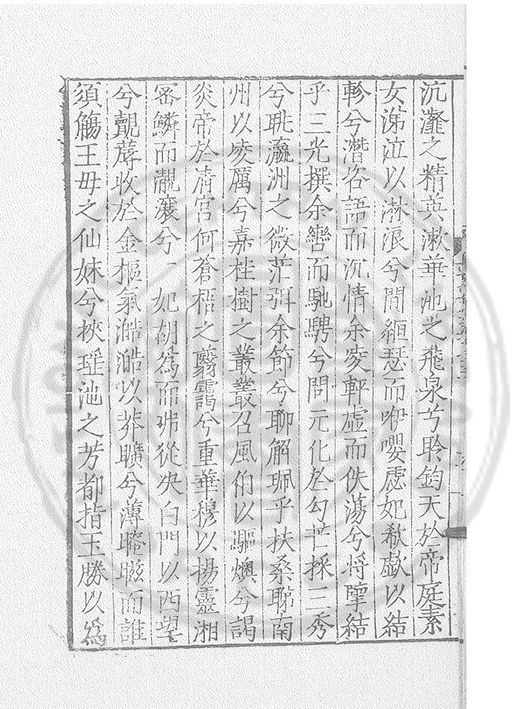 沆瀣之精英漱華池之飛泉兮聆鈞天於帝庭素
女涕泣以淋浪兮間絙瑟而咿嚶虙妃欷歔以結
軫兮潛咨語而沉情余凌軒虛而佚蕩兮將睾結
乎三光撰余轡而馳騁兮問元化於勾芒採三秀
兮眺瀛洲之微茫弭余節兮聊解珮乎扶桑睇南
州以凌厲兮嘉桂樹之叢叢召風伯以驅燠兮謁
炎帝於清宮何蒼梧之翳靄兮重華穆以揚靈湘
密鱗而靚瀼兮 妃胡為而㳅從央白門以西望
兮覿蓐收於金樞氣澔澔以莽曠兮薄暆㬌而誰
須觴王母之仙妹兮挾瑶池之芳都指玉勝以為